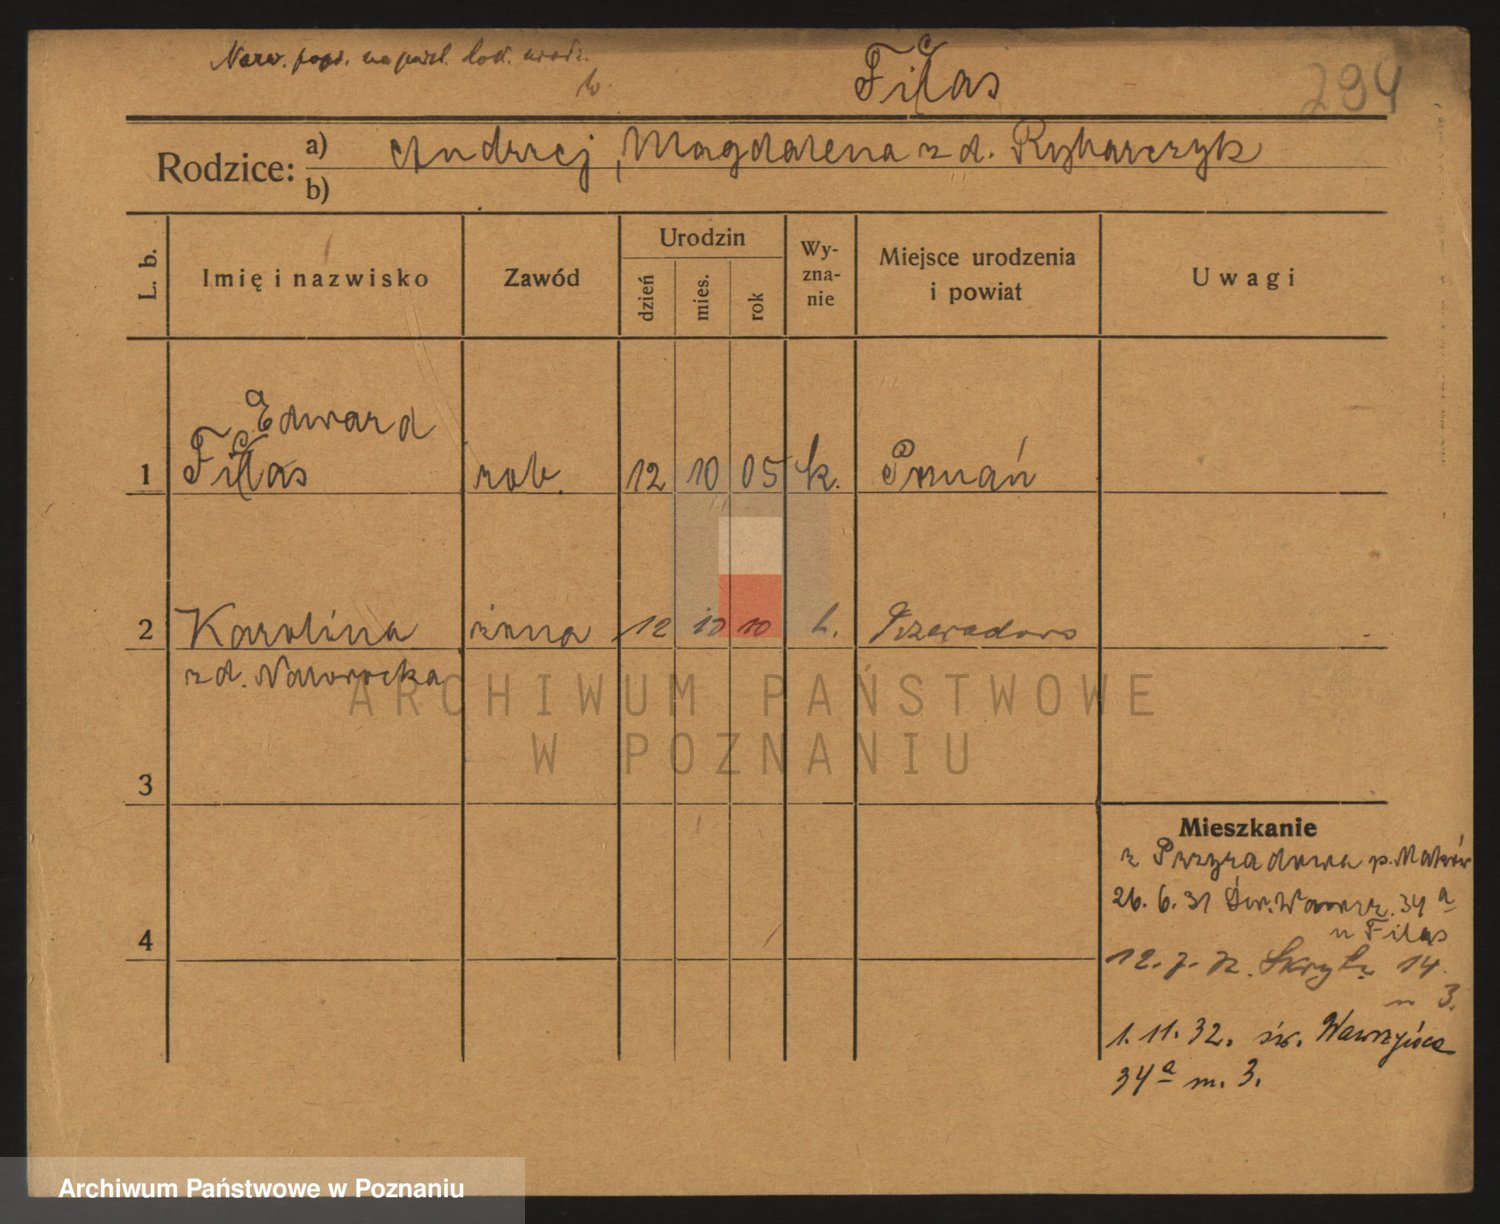 Nazw. popr. na podst. dok. urodz.
Filas
294
Rodzice: a) Andrzej, Magdalena z d. Rybarczyk
b)
L. b.
Imię i nazwisko
Zawód
Urodzin
dzień
mies.
rok
Wy-
zna-
nie
Miejsce urodzenia
i powiat
Uwagi
Edward
1 Filas rob. 12 10 05 k. Poznań
2 Karolina żona 12 10 10 k.
z d. Nawrocka
3
4
Mieszkanie
z p. Maków
26. 6. 31 Św. Wawrz. 34 a
u Filas
12. 7. 32. 14
m 3.
1. 11. 32. św. Wawrzyńca
34 a m. 3.
ARCHIWUM PAŃSTWOWE
W POZNANIU
Archiwum Państwowe w Poznaniu